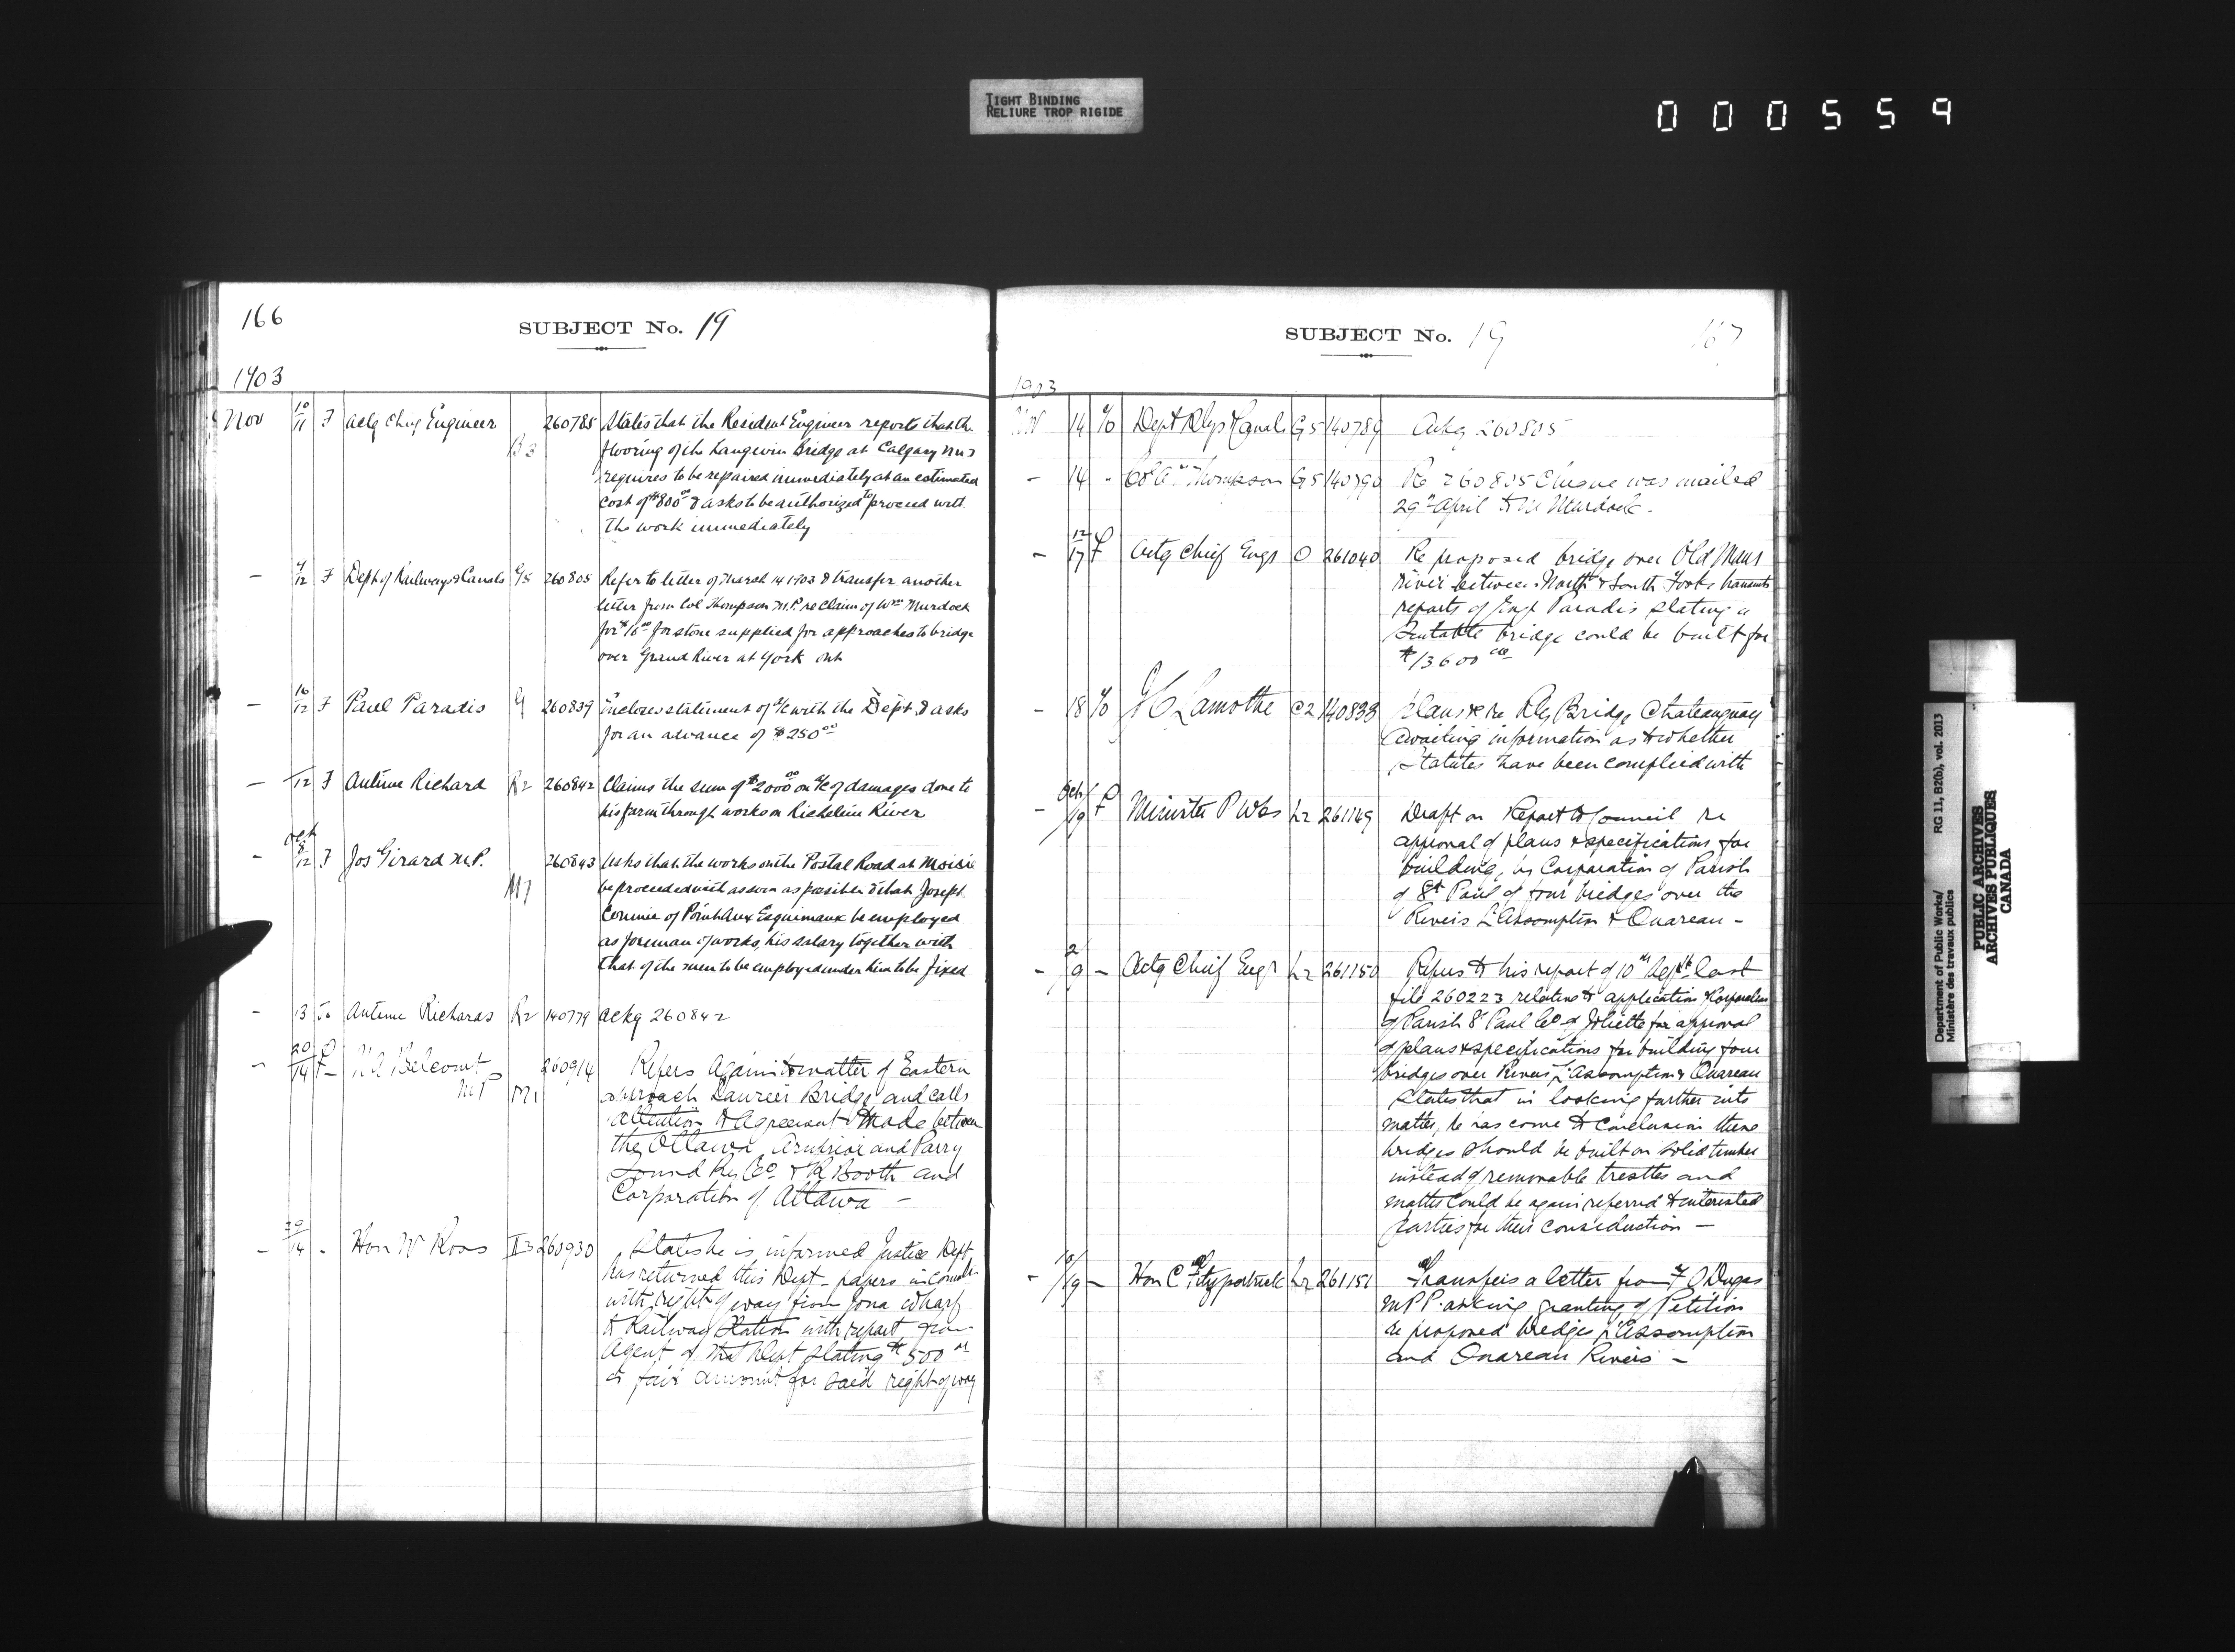 TIGHT BINDING
RELIURE TROP RIGIDE
000559
166
SUBJECT No. 19
1903
Nov 10/11 F Actg Chief Engineer B3 260785 States that the Resident Engineer reports that the
flooring of the Langevin Bridge at Calgary
requires to be repaired immediately at an estimated
cost of $800.00 & asks to be authorized to proceed with
the work immediately
— 9/12 F Dept of Railways & Canals G5 260805 Refer to letter of March 14 1903 & transfer another
letter from Col Thompson M.P. re Claim of Wm Murdock
for $16.00 for stone supplied for approaches to bridge
over Grand River at York Ont
— 10/12 F Paul Paradis G 260839 Incloses statement of a/c with the Dept. & asks
for an advance of $250.00
— /12 F Antime Richard R2 260842 Claims the sum of $2000.00 on a/c of damages done to
his farm through works on Richelieu River
— Oct 8/12 F Jos Girard M.P. M7 260843 Asks that the works on the Postal Road at Moisie
be proceeded with as soon as possible & that Joseph
of Point Aux Esquimaux be employed
as foreman of works, his salary together with
that of the men to be employed under him to be fixed
- 13 To Antime Richards R2 140779 Ackg 260842
- 20/14 F N A Belcourt MP M1 260914 Refers again to matter of Eastern
approach Laurier Bridge and calls
attention to Agreement made between
the Ottawa Arnprior and Parry
Sound Ry Co. & Booth and
Corporation of Ottawa —
- 30/14 - Hon W Ross I3 260930 States he is informed Justice Dept
has returned this Dept - papers in connectn
with right of way from Iona Wharf
to Railway Station with report from
Agent of that Dept stating $500.00
as fair amount for said right of way
SUBJECT No. 19
167
1903
Nov 14 To Dept Rlys & Canals G5 140789 Ackg 260805
- 14 - Col A Thompson G5 140790 Re 260805 Cheque was mailed
29th April to Wm Murdock.
- 12/17 F Actg Chief Engr O 261040 Re proposed bridge over Old Mans
river between North & South Forks transmits
reports of Engr Paradis stating a
suitable bridge could be built for
$13600.00
- 18 To J C Lamothe C2 140833 Plans &c re Rly Bridge Chateauguay
awaiting information as to whether
Statutes have been complied with
- Oct/19 F Minister P Wks L2 261149 Draft on Report to Council re
approval of plans & specifications for
building, by Corporation of Parish
of St Paul of four bridges over the
Rivers L'Assomption & Ouareau -
- 2/19 - Actg Chief Engr L2 261150 Refers to his report of 10th Sept last
file 260223 relative to application Corporation
of Parish St Paul Co of Joliette for approval
of plans & specifications for building four
bridges over Rivers L'Assomption & Ouareau
States that in looking further into
matter, he has come to conclusion these
bridges should be built on solid timber
instead of removable trestles and
matter could be again referred to interested
parties for their consideration —
- 10/19 - Hon C Fitzpatrick L2 261151 Transfers a letter from F O Dugas
M P P. asking granting of Petition
re proposed bridges L'Assomption
and Ouareau Rivers -
Department of Public Works/ RG 11, B2(b), vol. 2013
Ministère des travaux publics
PUBLIC ARCHIVES
ARCHIVES PUBLIQUES
CANADA